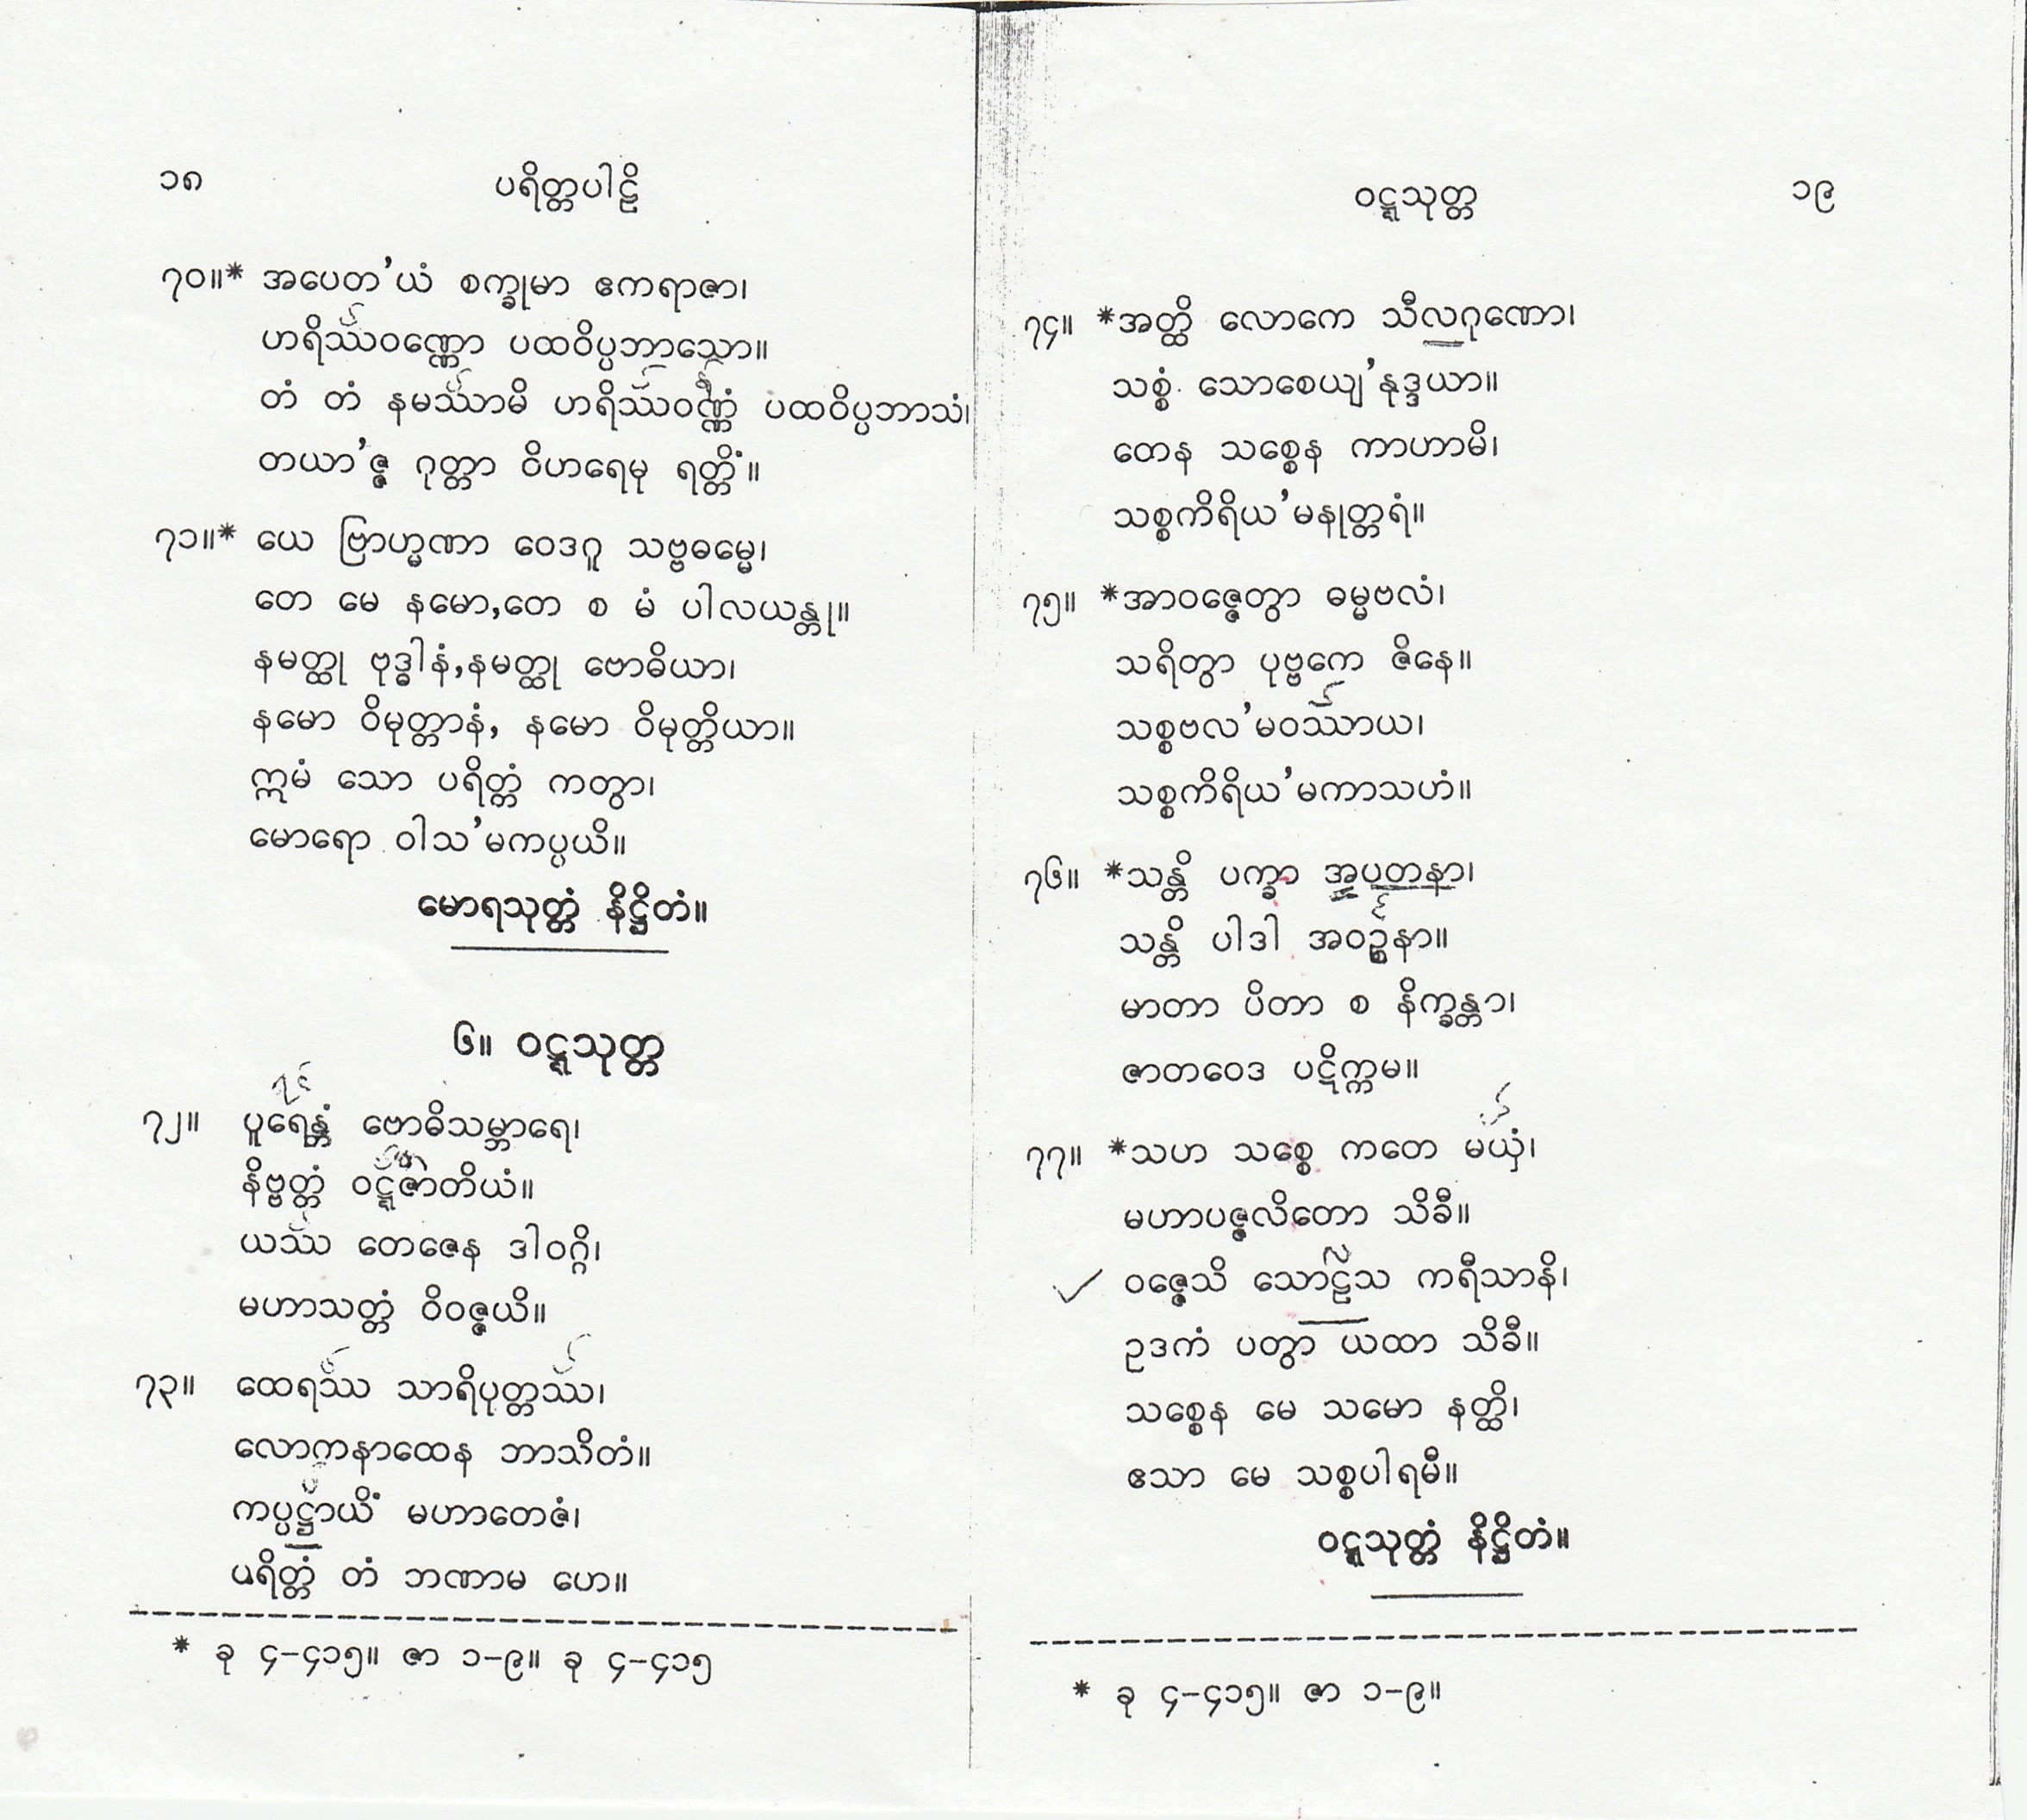 ၁၈
ပရိတ္တပါဠိ
၇၀။* အပေတ’ယံ စက္ခုမာ ဧကရာဇာ၊
ဟရိဿဝဏ္ဏော ပထဝိပ္ပဘာသော။
တံ တံ နမဿာမိ ဟရိဿဝဏ္ဏံ ပထဝိပ္ပဘာသံ၊
တယာ’ဇ္ဇ ဂုတ္တာ ဝိဟရေမု ရတ္တိံ။
၇၁။* ယေ ဗြာဟ္မဏာ ဝေဒဂူ သဗ္ဗဓမ္မေ၊
တေ မေ နမော,တေ စ မံ ပါလယန္တု။
နမတ္ထု ဗုဒ္ဓါနံ,နမတ္ထု ဗောဓိယာ၊
နမော ဝိမုတ္တာနံ, နမော ဝိမုတ္တိယာ။
ဣမံ သော ပရိတ္တံ ကတွာ၊
မောရော ဝါသ’မကပ္ပယိ။
မောရသုတ္တံ နိဋ္ဌိတံ။
၆။ ဝဋ္ဋသုတ္တ
၇၂။ ပူရေန္တံ ဗောဓိသမ္ဘာရေ၊
နိဗ္ဗတ္တံ ဝဋ္ဋဇာတိယံ။
ယဿ တေဇေန ဒါဝဂ္ဂိ၊
မဟာသတ္တံ ဝိဝဇ္ဇယိ။
၇၃။ ထေရဿ သာရိပုတ္တဿ၊
လောကနာထေန ဘာသိတံ။
ကပ္ပဋ္ဌာယိံ မဟာတေဇံ၊
ပရိတ္တံ တံ ဘဏာမ ဟေ။
* ခု ၄-၄၁၅။ ဇာ ၁-၉။ ခု ၄-၄၁၅
ဝဋ္ဋသုတ္တ
၁၉
၇၄။ *အတ္ထိ လောကေ သီလဂုဏော၊
သစ္စံ သောစေယျ’နုဒ္ဒယာ။
တေန သစ္စေန ကာဟာမိ၊
သစ္စကိရိယ’မနုတ္တရံ။
၇၅။ *အာဝဇ္ဇေတွာ ဓမ္မဗလံ၊
သရိတွာ ပုဗ္ဗကေ ဇိနေ။
သစ္စဗလ’မဝဿာယ၊
သစ္စကိရိယ’မကာသဟံ။
၇၆။ *သန္တိ ပက္ခာ အပတနာ၊
သန္တိ ပါဒါ အဝဉ္စနာ။
မာတာ ပိတာ စ နိက္ခန္တာ၊
ဇာတဝေဒ ပဋိက္ကမ။
၇၇။ *သဟ သစ္စေ ကတေ မယှံ၊
မဟာပဇ္ဇလိတော သိခီ။
ဝဇ္ဇေသိ သောဠသ ကရီသာနိ၊
ဥဒကံ ပတွာ ယထာ သိခီ။
သစ္စေန မေ သမော နတ္ထိ၊
ဧသာ မေ သစ္စပါရမီ။
ဝဋ္ဋသုတ္တံ နိဋ္ဌိတံ။
* ခု ၄-၄၁၅။ ဇာ ၁-၉။